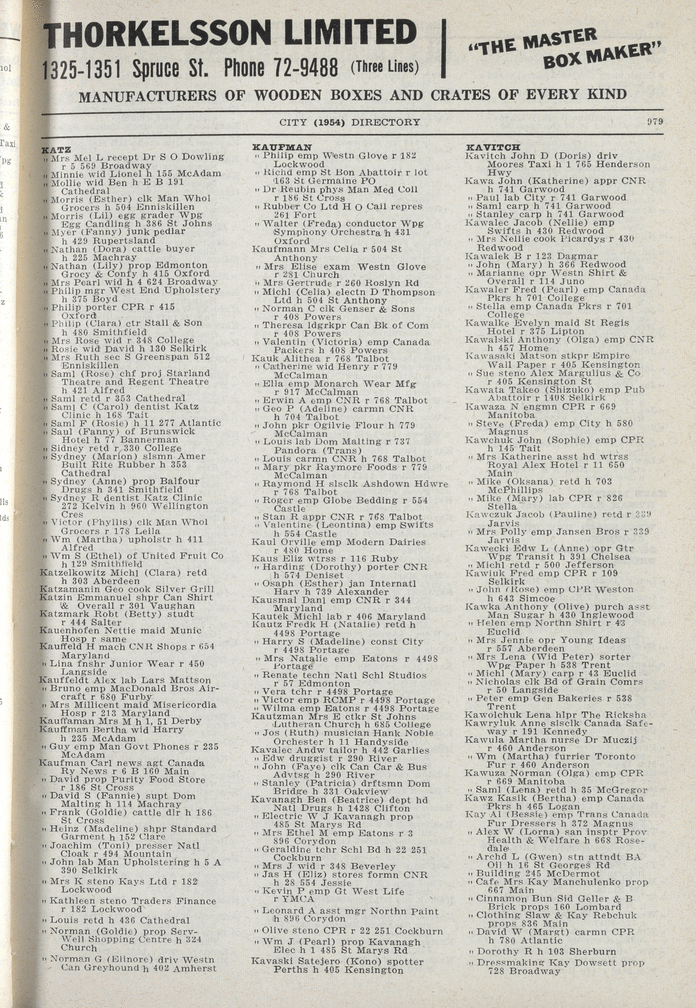 THORKELSSON LIMITED
1325-1351 Spruce St. Phone 72-9488 (Three Lines)
"THE MASTER
BOX MAKER"
MANUFACTURERS OF WOODEN BOXES AND CRATES OF EVERY KIND
CITY (1954) DIRECTORY
979
KATZ
" Mrs Mel L recept Dr S O Dowling
r 5 569 Broadway
" Minnie wid Lionel h 155 McAdam
" Mollie wid Ben h E B 191
Cathedral
" Morris (Esther) clk Man Whol
Grocers h 504 Enniskillen
" Morris (Lil) egg grader Wpg
Egg Candling h 386 St Johns
" Myer (Fanny) junk pedlar
h 429 Rupertsland
" Nathan (Dora) cattle buyer
h 225 Machray
" Nathan (Lily) prop Edmonton
Grocy & Confy h 415 Oxford
" Mrs Pearl wid h 4 624 Broadway
" Philip mgr West End Upholstery
h 375 Boyd
" Philip porter CPR r 415
Oxford
" Philip (Clara) ctr Stall & Son
h 480 Smithfield
" Mrs Rose wid r 348 College
" Rosie wid David h 130 Selkirk
" Mrs Ruth sec S Greenspan 512
Enniskillen
" Saml (Rose) chf proj Starland
Theatre and Regent Theatre
h 421 Alfred
" Saml retd r 353 Cathedral
" Saml C (Carol) dentist Katz
Clinic h 168 Tait
" Saml F (Rosie) h 11 277 Atlantic
" Saul (Fanny) of Brunswick
Hotel h 77 Bannerman
" Sidney retd r 330 College
" Sydney (Marion) slsmn Amer
Built Rite Rubber h 353
Cathedral
" Sydney (Anne) prop Balfour
Drugs h 341 Smithfield
" Sydney R dentist Katz Clinic
272 Kelvin h 960 Wellington
Cres
" Victor (Phyllis) clk Man Whol
Grocers r 178 Leila
" Wm (Martha) upholstr h 411
Alfred
" Wm S (Ethel) of United Fruit Co
h 129 Smithfield
Katzelkowitz Michl (Clara) retd
h 303 Aberdeen
Katzamanin Geo cook Silver Grill
Katzin Emmanuel shpr Can Shirt
& Overall r 301 Vaughan
Katzmark Robt (Betty) studt
r 444 Salter
Kauenhofen Nettie maid Munic
Hosp r same
Kauffeld H mach CNR Shops r 654
Maryland
" Lina fnshr Junior Wear r 450
Langside
Kauffeldt Alex lab Lars Mattson
" Bruno emp MacDonald Bros Air-
craft r 680 Furby
" Mrs Millicent maid Misericordia
Hosp r 213 Maryland
Kauffaman Mrs M h 1, 51 Derby
Kauffman Bertha wid Harry
h 235 McAdam
" Guy emp Man Govt Phones r 235
McAdam
Kaufman Carl news agt Canada
Ry News r 6 B 160 Main
" David prop Purity Food Store
r 186 St Cross
" David S (Fannie) supt Dom
Malting h 114 Machray
" Frank (Goldie) cattle dlr h 186
St Cross
" Heinz (Madeline) shpr Standard
Garment h 152 Clare
" Joachim (Toni) presser Natl
Cloak r 494 Mountain
" John lab Man Upholstering h 5 A
390 Selkirk
" Mrs K steno Kays Ltd r 182
Lockwood
" Kathleen steno Traders Finance
r 182 Lockwood
" Louis retd h 436 Cathedral
" Norman (Goldie) prop Serv-
Well Shopping Centre h 324
Church
" Norman G (Elinore) driv Westn
Can Greyhound h 402 Amherst
KAUFMAN
" Philip emp Westn Glove r 182
Lockwood
" Richd emp St Bon Abattoir r lot
163 St Germaine PO
" Dr Reubin phys Man Med Coll
r 186 St Cross
" Rubber Co Ltd H O Call repres
261 Fort
" Walter (Freda) conductor Wpg
Symphony Orchestra h 431
Oxford
Kaufmann Mrs Celia r 504 St
Anthony
" Mrs Elise exam Westn Glove
r 281 Church
" Mrs Gertrude r 260 Roslyn Rd
" Michl (Celia) electn D Thompson
Ltd h 504 St Anthony
" Norman C clk Genser & Sons
r 408 Powers
" Theresa ldgrkpr Can Bk of Com
r 408 Powers
" Valentin (Victoria) emp Canada
Packers h 408 Powers
Kauk Alithea r 768 Talbot
" Catherine wid Henry r 779
McCalman
" Ella emp Monarch Wear Mfg
r 917 McCalman
" Erwin A emp CNR r 768 Talbot
" Geo P (Adeline) carmn CNR
h 704 Talbot
" John pkr Ogilvie Flour h 779
McCalman
" Louis lab Dom Malting r 737
Pandora (Trans)
" Louis carmn CNR h 768 Talbot
" Mary pkr Raymore Foods r 779
McCalman
" Raymond H slsclk Ashdown Hdwre
r 768 Talbot
" Roser emp Globe Bedding r 554
Castle
" Stan R appr CNR r 768 Talbot
" Valentine (Leontina) emp Swifts
h 554 Castle
Kaul Orville emp Modern Dairies
r 480 Home
Kaus Eliz wtrss r 116 Ruby
" Harding (Dorothy) porter CNR
h 574 Deniset
" Osaph (Esther) jan Internatl
Harv h 739 Alexander
Kausmal Danl emp CNR r 344
Maryland
Kautek Michl lab r 406 Maryland
Kautz Fredk H (Natalie) retd h
4498 Portage
" Harry S (Madeline) const City
r 4498 Portage
" Mrs Natalie emp Eatons r 4498
Portage
" Renate techn Natl Schl Studios
r 57 Edmonton
" Vera tchr r 4498 Portage
" Victor emp RCMP r 4498 Portage
" Wilma emp Eatons r 4498 Portage
Kautzman Mrs E ctkr St Johns
Lutheran Church h 685 College
" Jos (Ruth) musician Hank Noble
Orchester h 11 Handyside
Kavalec Andw tailor h 442 Garlies
" Edw druggist r 290 River
" John (Faye) clk Can Car & Bus
Advtsg h 290 River
" Stanley (Patricia) drftsmn Dom
Bridge h 331 Oakview
Kavanagh Ben (Beatrice) dept hd
Natl Drugs h 1428 Clifton
" Electric W J Kavanagh prop
485 St Marys Rd
" Mrs Ethel M emp Eatons r 3
896 Corydon
" Geraldine tchr Schl Bd h 22 251
Cockburn
" Mrs J wid r 348 Beverley
" Jas H (Eliz) stores formn CNR
h 28 554 Jessie
" Kevin P emp Gt West Life
r YMCA
" Leonard A asst mgr Northn Paint
h 896 Corydon
" Olive steno CPR r 22 251 Cockburn
" Wm J (Pearl) prop Kavanagh
Elec h 1 485 St Marys Rd
Kavaski Satejero (Kono) spotter
Perths h 405 Kensington
KAVITCH
Kavitch John D (Doris) driv
Moores Taxi h 1 765 Henderson
Hwy
Kawa John (Katherine) appr CNR
h 741 Garwood
" Paul lab City r 741 Garwood
" Saml carp h 741 Garwood
" Stanley carp h 741 Garwood
Kawalec Jacob (Nellie) emp
Swifts h 430 Redwood
" Mrs Nellie cook Picardys r 430
Redwood
Kawalek B r 123 Dagmar
" John (Mary) h 366 Redwood
" Marianne opr Westn Shirt &
Overall r 114 Juno
Kawaler Fred (Pearl) emp Canada
Pkrs h 701 College
" Stella emp Canada Pkrs r 701
College
Kawalke Evelyn maid St Regis
Hotel r 375 Lipton
Kawalski Anthony (Olga) emp CNR
h 457 Home
Kawasaki Matson stkpr Empire
Wall Paper r 405 Kensington
" Sue steno Alex Margulius & Co
r 405 Kensington St
Kawata Takeo (Shizuko) emp Pub
Abattoir r 1408 Selkirk
Kawaza N engmn CPR r 669
Manitoba
" Steve (Freda) emp City h 580
Magnus
Kawchuk John (Sophie) emp CPR
h 145 Tait
" Mrs Katherine asst hd wtrss
Royal Alex Hotel r 11 650
Main
" Mike (Oksana) retd h 703
McPhillips
" Mike (Mary) lab CPR r 826
Stella
Kawczuk Jacob (Pauline) retd r 339
Jarvis
" Mrs Polly emp Jansen Bros r 339
Jarvis
Kawecki Edw L (Anne) opr Gtr
Wpg Transit h 391 Chelsea
" Michl retd r 500 Jefferson
Kawiuk Fred emp CPR r 109
Selkirk
" John (Rose) emp CPR Weston
h 643 Simcoe
Kawka Anthony (Olive) purch asst
Man Sugar h 430 Inglewood
" Helen emp Northn Shirt r 43
Euclid
" Mrs Jennie opr Young Ideas
r 557 Aberdeen
" Mrs Lena (Wid Peter) sorter
Wpg Paper h 538 Trent
" Michl (Mary) carp r 43 Euclid
" Nicholas clk Bd of Grain Comrs
r 50 Langside
" Peter emp Gen Bakeries r 538
Trent
Kawolchuk Lena hlp The Ricksha
Kawryluk Anne slsclk Canada Safe-
way r 191 Kennedy
Kawula Martha nurse Dr Muczij
r 460 Anderson
" Wm (Martha) furrier Toronto
Fur r 460 Anderson
Kawuza Norman (Olga) emp CPR
r 669 Manitoba
" Saml (Lena) retd h 35 McGregor
Kawz Kasik (Bertha) emp Canada
Pkrs h 465 Logan
Kay Al (Bessie) emp Trans Canada
Fur Dressers h 372 Magnus
" Alex W (Lorna) san insptr Prov
Health & Welfare h 668 Rose-
dale
" Archd L (Gwen) stn attndt BA
Oil h 16 St Georges Rd
" Building 245 McDermot
" Cafe Mrs Kay Manchulenko prop
667 Main
" Cinnamon Bun Sid Geller & B
Brick props 160 Lombard
" Clothing Slaw & Kay Rebchuk
props 836 Main
" David W (Margt) carmn CPR
h 780 Atlantic
" Dorothy R h 103 Sherburn
" Dressmaking Kay Dowsett prop
728 Broadway